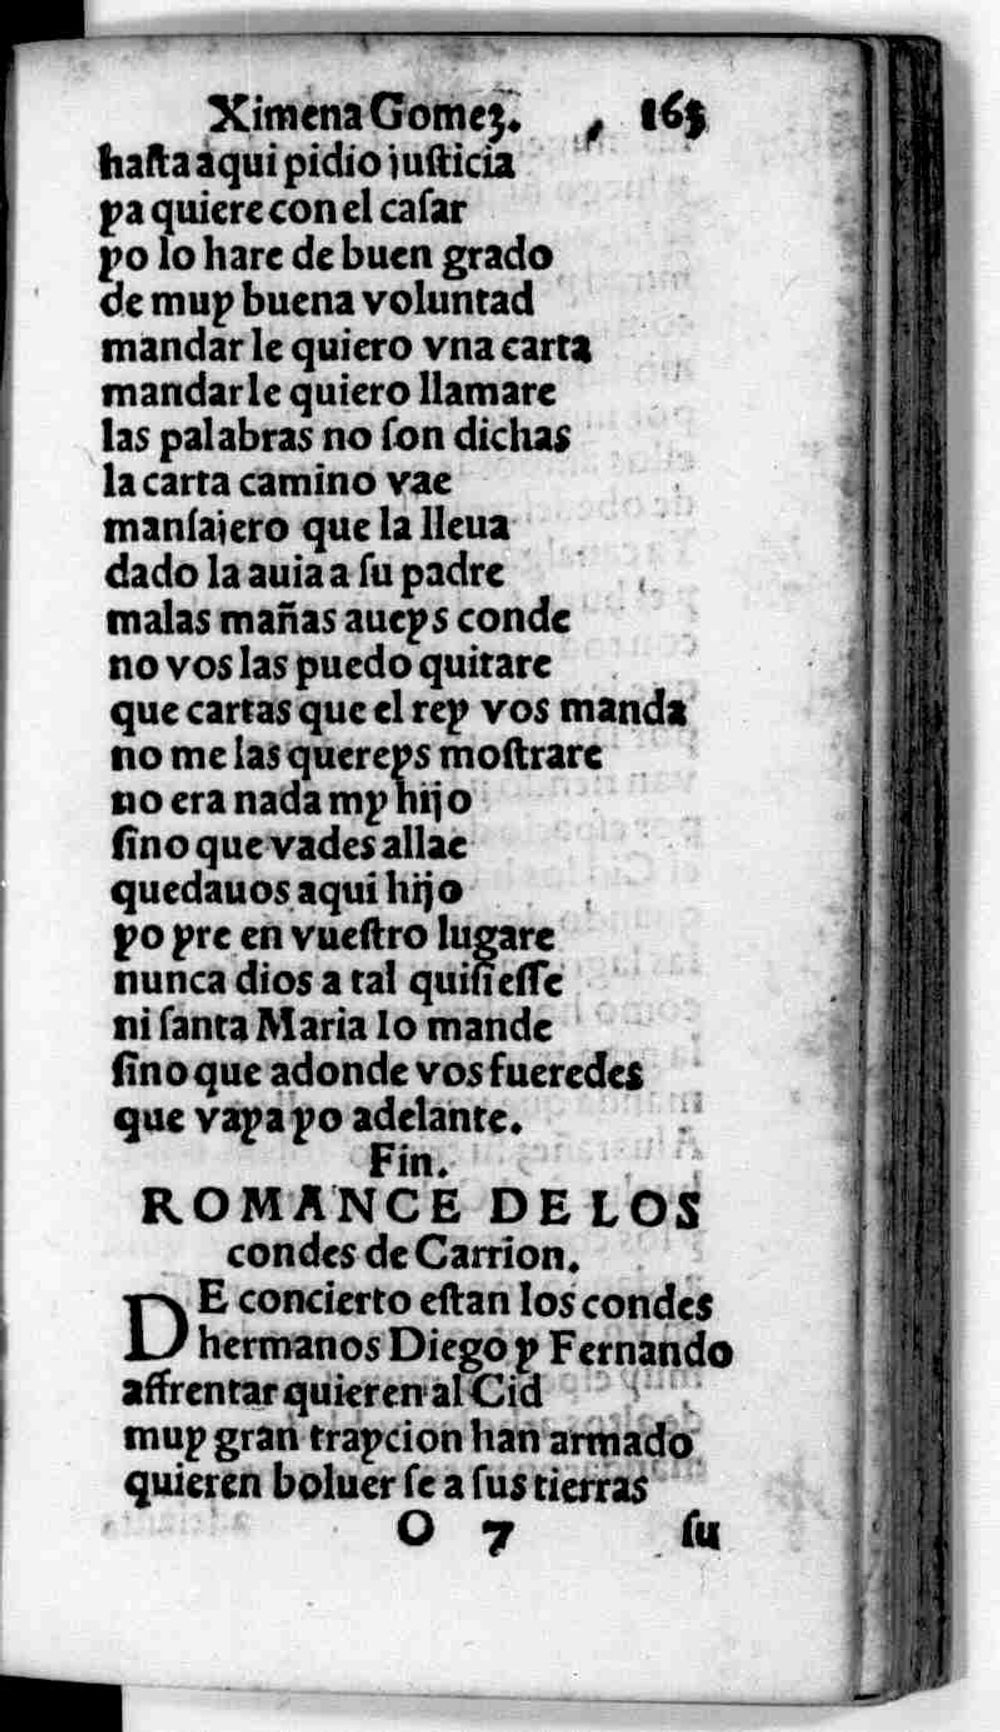 Ximena Gomez. 165
haſta aqui pidio iuſticia
ya quiere con el caſar
yo lo hare de buen grado
de muy buena voluntad
mandar le quiero vna carta
mandar le quiero llamare
las palabras no ſon dichas
la carta camino vae
manſaiero que la lleua
dado la auia a ſu padre
malas mañas aueys conde
no vos las puedo quitare
que cartas que el rey vos manda
no me las quereys moſtrare
no era nada my hijo
ſino que vades allae
quedauos aqui hijo
yo yre en vueſtro lugare
nunca dios a tal quiſieſſe
ni ſanta Maria lo mande
ſino que adonde vos fueredes
que vaya yo adelante.
Fin.
ROMANCE DE LOS
condes de Carrion.
DE concierto eſtan los condes
hermanos Diego y Fernando
affrentar quieren al Cid
muy gran traycion han armado
quieren boluer ſe a ſus tierras
O 7 ſu